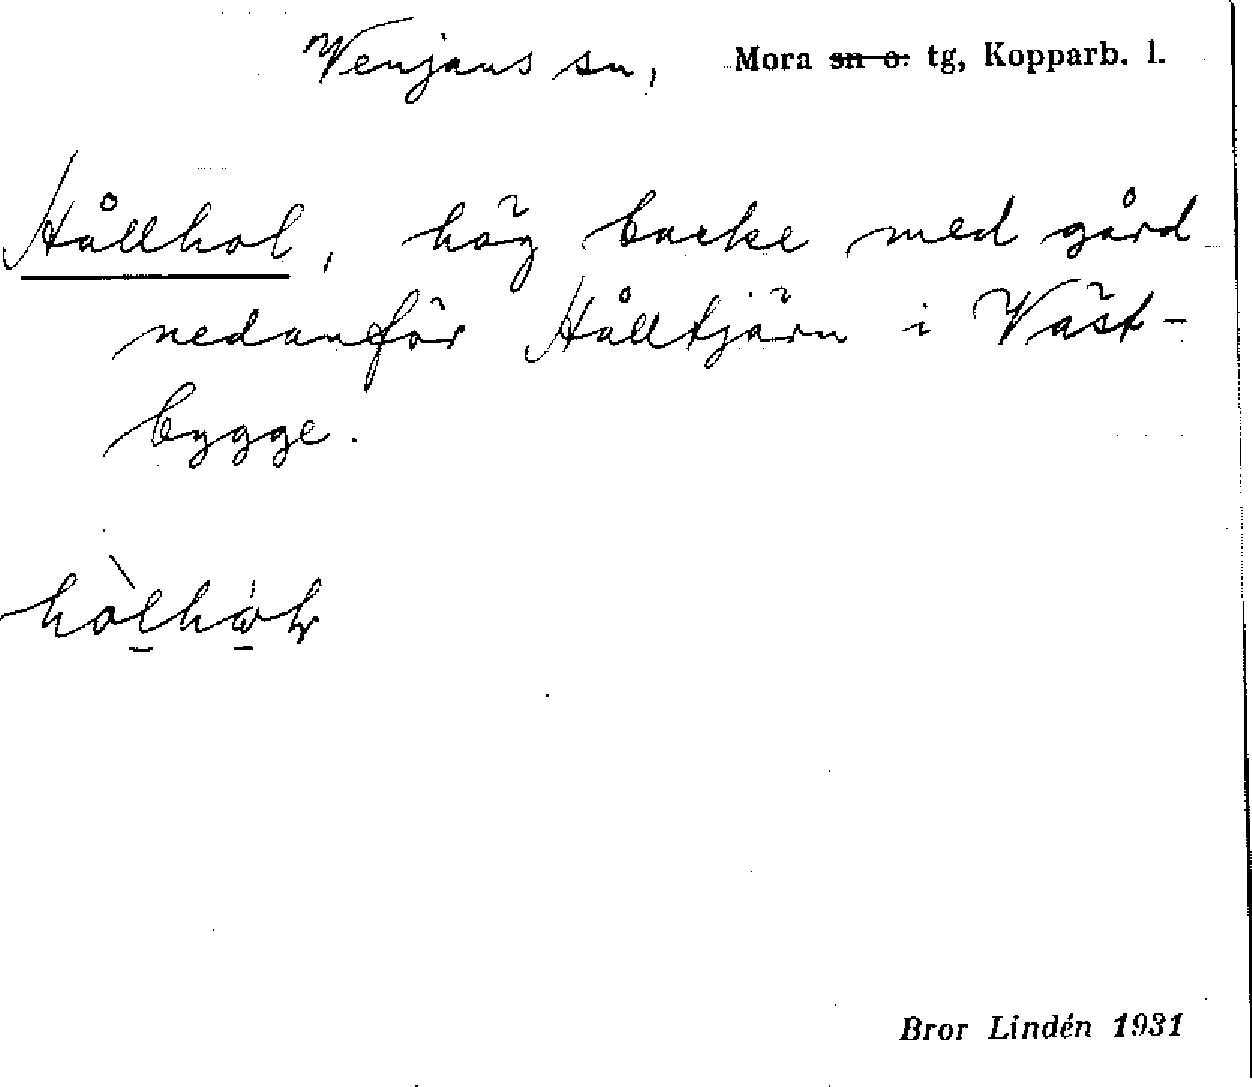 Venjans sn, Mora sn o. tg, Kopparb. l.
Hållhol, hög backe med gård
nedanför Hålltjärn i Väst-
bygge.
Bror Lindén 1931